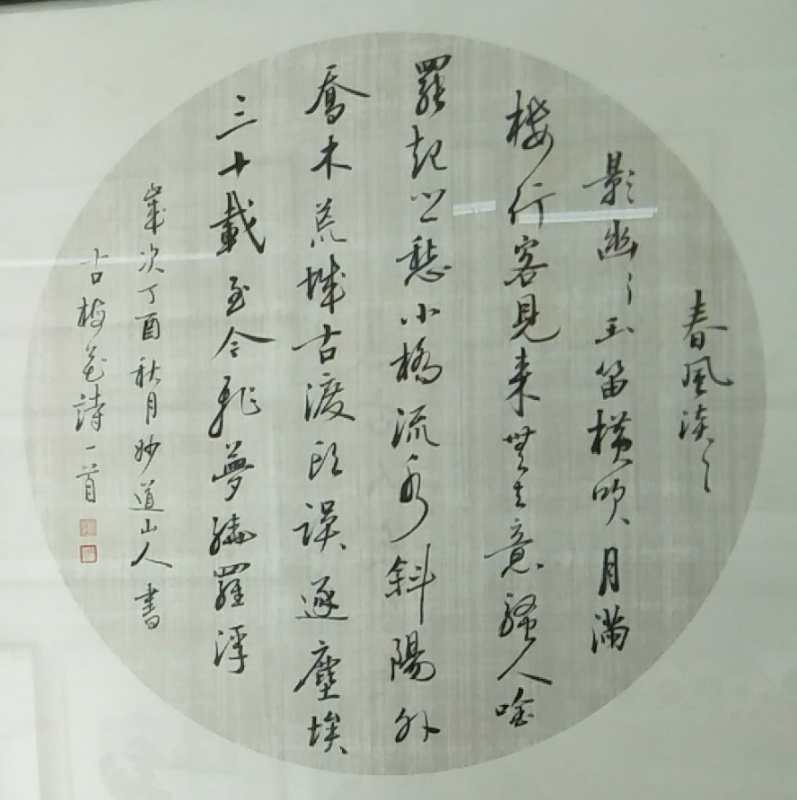 春風淡〻
影幽〻玉笛橫吹月滿
樓行客見来無生意騷人吟
罷起閑愁小橋流水斜陽外
喬木荒城古渡頭誤逐塵埃
三十載至今飛夢繞羅浮
歲次丁酉秋月妙道山人書
古梅花詩一首